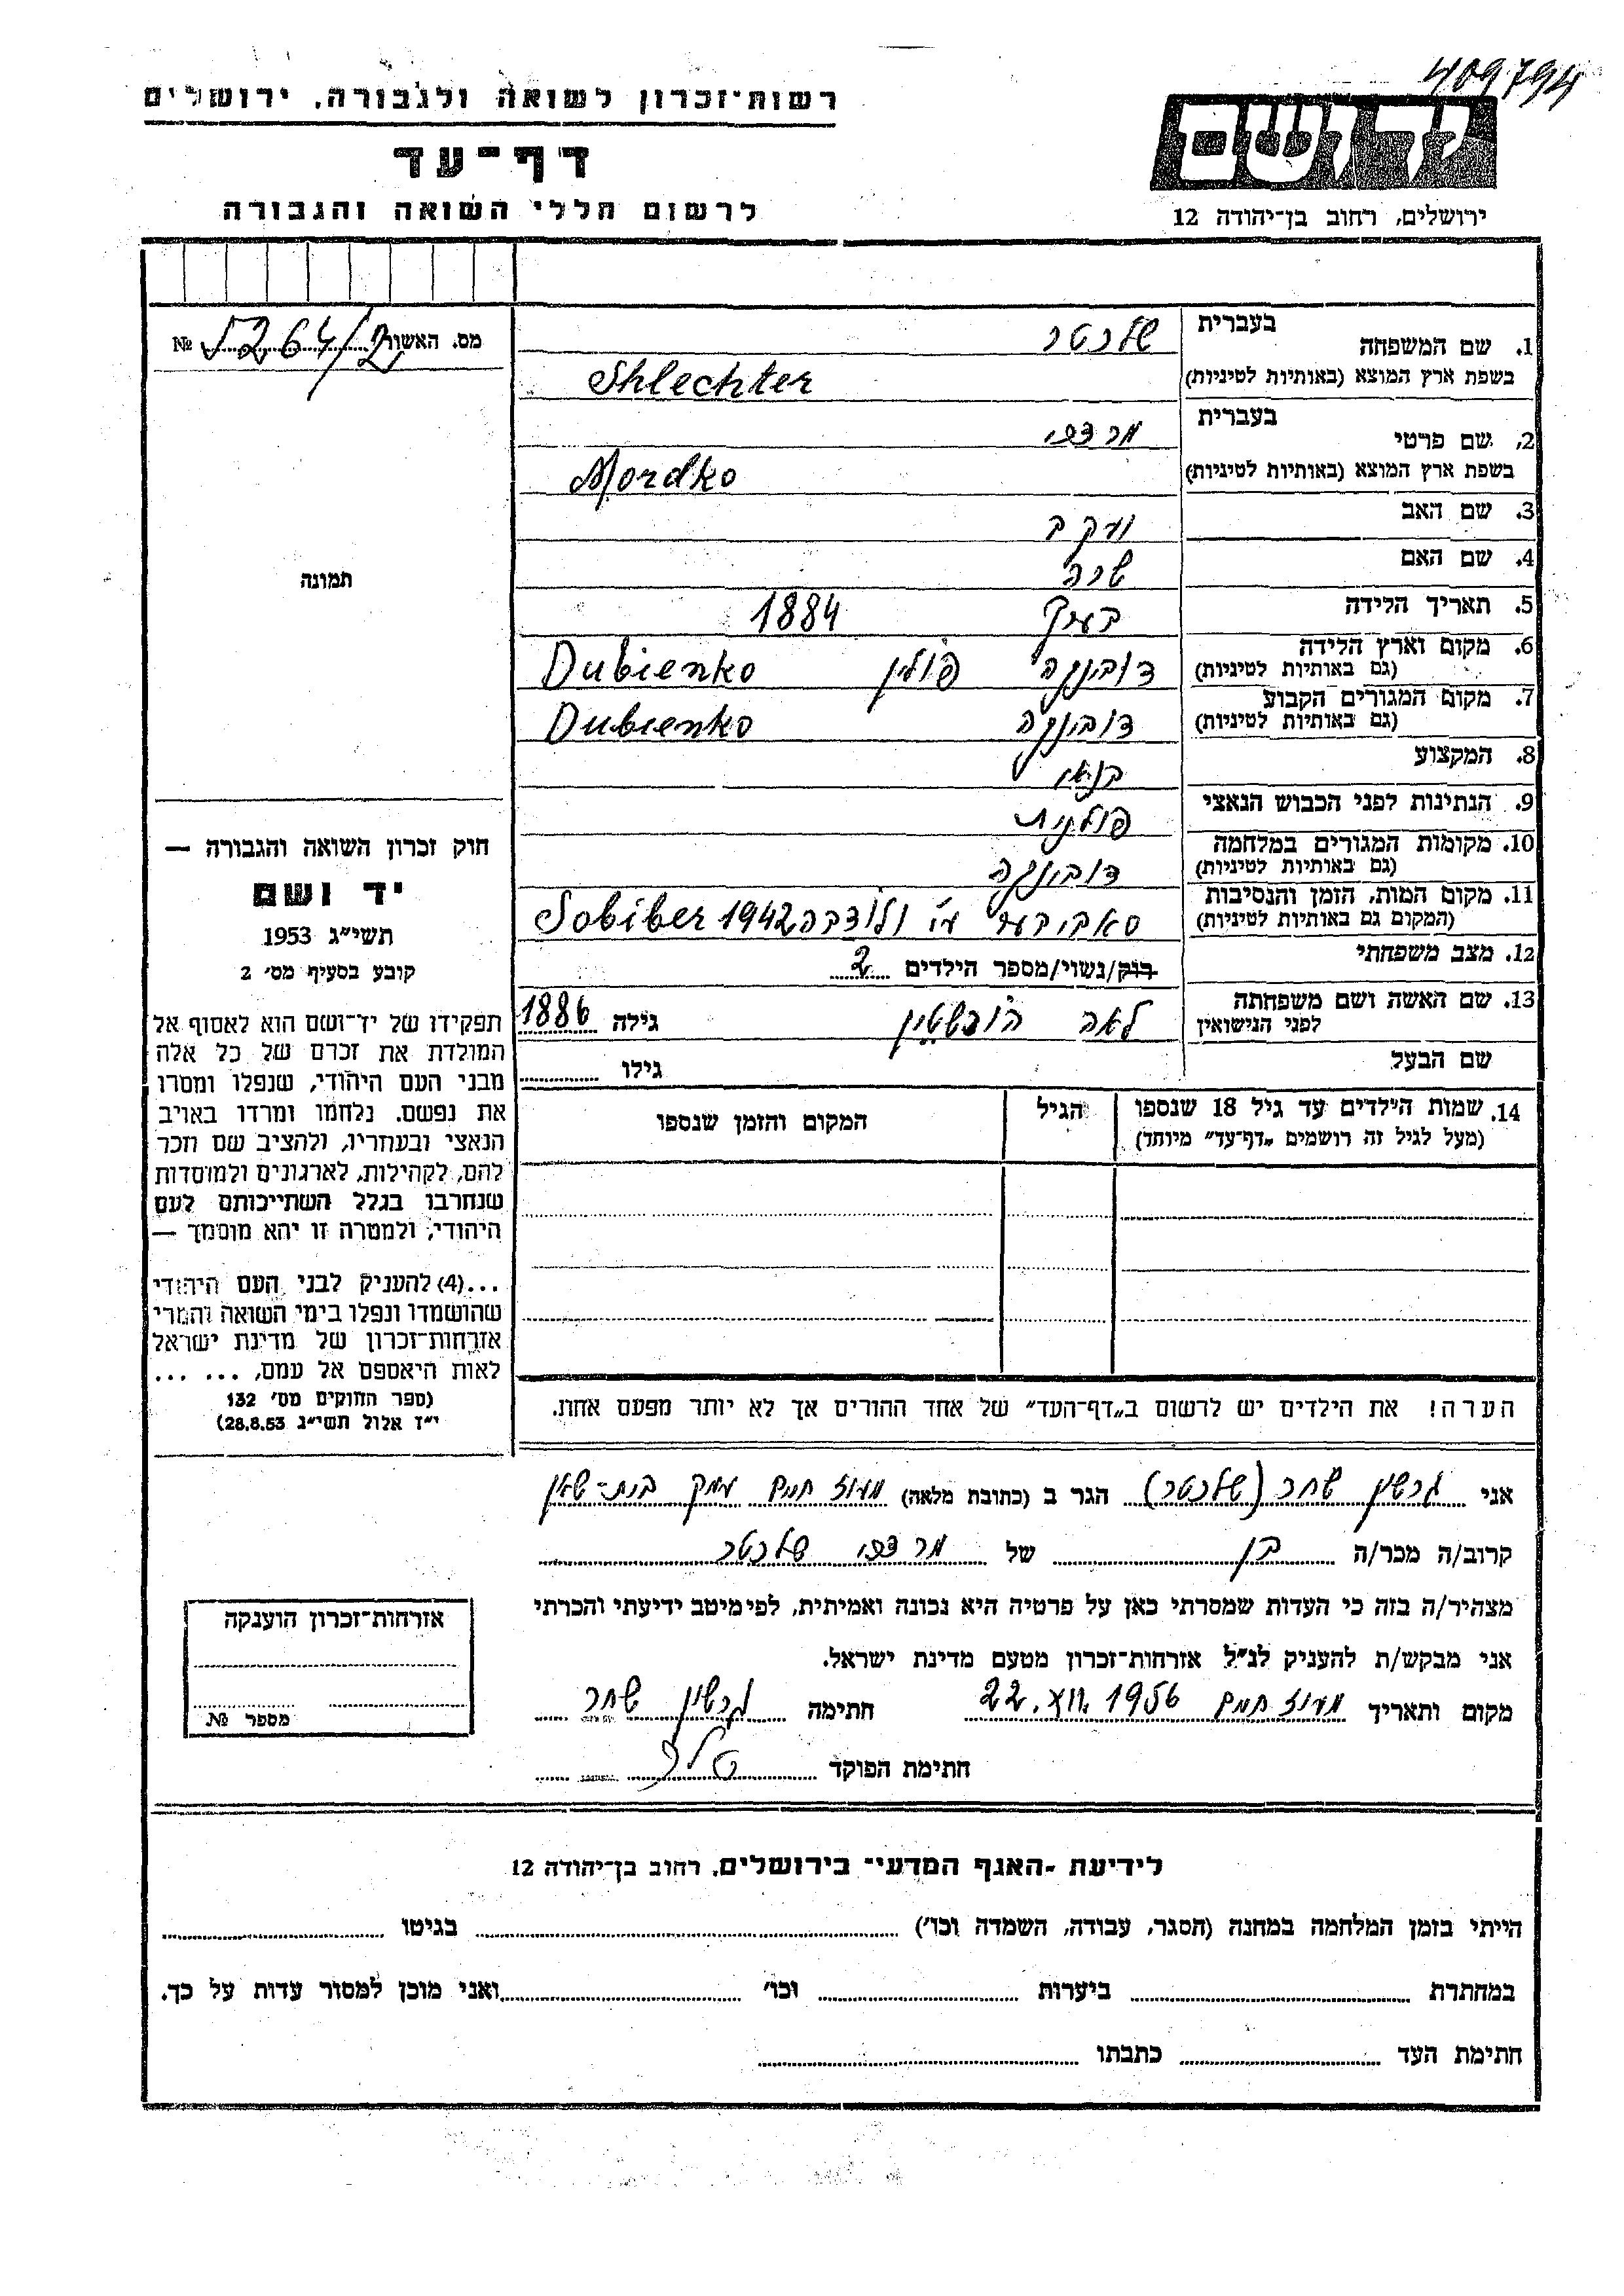 409794
רשות־זכרון לשואה ולגבורה, ירושלים
דף־עד
לרשום חללי השואה והגבורה
יד ושם
ירושלים, רחוב בן־יהודה 12
מס. האשור
№ 5264/2
תמונה
חוק זכרון השואה והגבורה —
יד ושם
תשי״ג 1953
קובע בסעיף מס׳ 2
תפקידו של יד־ושם הוא לאסוף אל
המולדת את זכרם של כל אלה
מבני העם היהודי, שנפלו ומסרו
את נפשם, נלחמו ומרדו באויב
הנאצי ובעוזריו, ולהציב שם וזכר
להם, לקהילות, לארגונים ולמוסדות
שנחרבו בגלל השתייכותם לעם
היהודי, ולמטרה זו יהא מוסמך —
...(4) להעניק לבני העם היהודי
שהושמדו ונפלו בימי השואה והמרי
אזרחות־זכרון של מדינת ישראל
לאות היאספם אל עמם, ... ...
(ספר החוקים מס׳ 132
י״ז אלול תשי״ג 28.8.53)
1. שם המשפחה בעברית שלכטר
בשפת ארץ המוצא (באותיות לטיניות) Shlechter
2. שם פרטי בעברית מרדכי
בשפת ארץ המוצא (באותיות לטיניות) Mordko
3. שם האב יעקב
4. שם האם שרה
5. תאריך הלידה בערך 1884
6. מקום וארץ הלידה דובינקה פולין Dubienko
(גם באותיות לטיניות)
7. מקום המגורים הקבוע דובינקה Dubienko
(גם באותיות לטיניות)
8. המקצוע בנאי
9. הנתינות לפני הכבוש הנאצי פולנית
10. מקומות המגורים במלחמה דובינקה
(גם באותיות לטיניות)
11. מקום המות, הזמן והנסיבות סאביבער ע״י ולודבה 1942 Sobiber
(המקום גם באותיות לטיניות)
12. מצב משפחתי רוק/נשוי/מספר הילדים 2
13. שם האשה ושם משפחתה לאה גילה 1886
לפני הנישואין
שם הבעל גילו
14. שמות הילדים עד גיל 18 שנספו הגיל המקום והזמן שנספו
(מעל לגיל זה רושמים „דף־עד״ מיוחד)
הערה! את הילדים יש לרשום ב„דף־העד״ של אחד ההורים אך לא יותר מפעם אחת.
אני גרשון שחר (שלכטר) הגר ב (כתובת מלאה) מעוז חיים עמק בית־שאן
קרוב/ה מכר/ה בן של מרדכי שלכטר
מצהיר/ה בזה כי העדות שמסרתי כאן על פרטיה היא נכונה ואמיתית, לפי מיטב ידיעתי והכרתי
אני מבקש/ת להעניק לנ״ל אזרחות־זכרון מטעם מדינת ישראל.
מקום ותאריך מעוז חיים 22.XII.1956 חתימה גרשון שחר
חתימת הפוקד
אזרחות־זכרון הוענקה
מספר №
לידיעת ־האגף המדעי־ בירושלים, רחוב בן־יהודה 12
הייתי בזמן המלחמה במחנה (הסגר, עבודה, השמדה וכו׳) בגיטו
במחתרת ביערות וכו׳ ואני מוכן למסור עדות על כך.
חתימת העד כתבתו